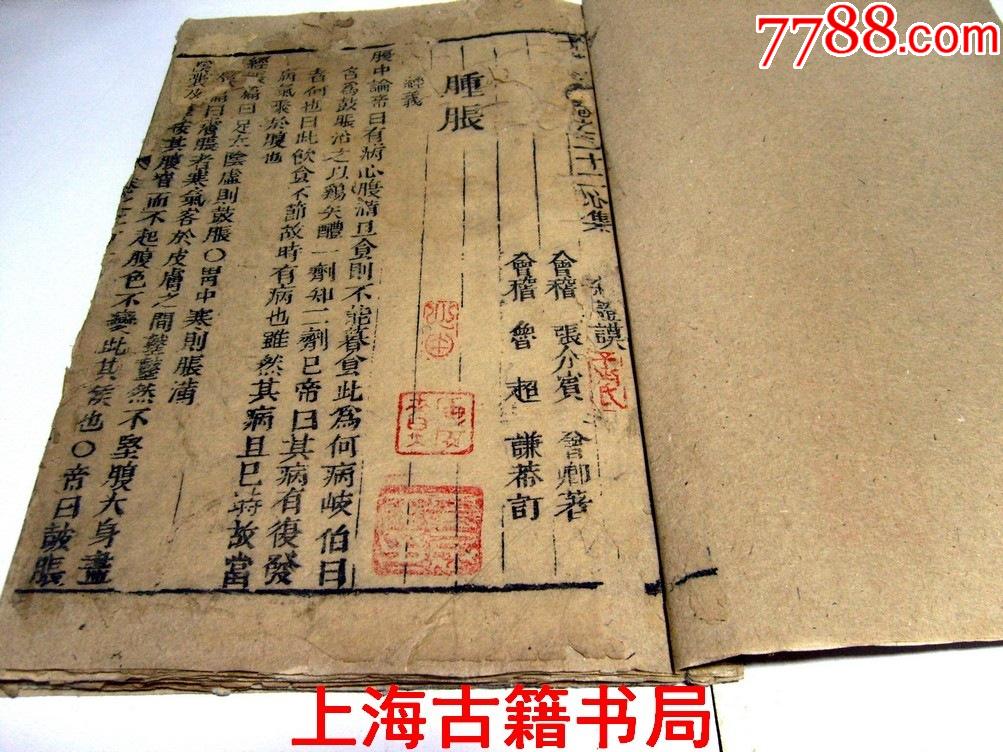 7788.com
二十二心集
謨
會稽 張介賓 會卿著
會稽 魯超 謙菴訂
腫脹
經義
腹中論帝曰有病心腹滿旦食則不能暮食此為何病岐伯曰
名為鼓脹治之以鷄矢醴一劑知二劑已帝曰其病有復發
者何也曰此飲食不節故時有病也雖然其病且已時故當
病氣聚於腹也
經脉篇曰足太陰虛則鼓脹○胃中寒則脹滿
篇曰膚脹者寒氣客於皮膚之間鼟鼟然不堅腹大身盡
按其腹窅而不起腹色不變此其候也○帝曰鼓脹
上海古籍书局